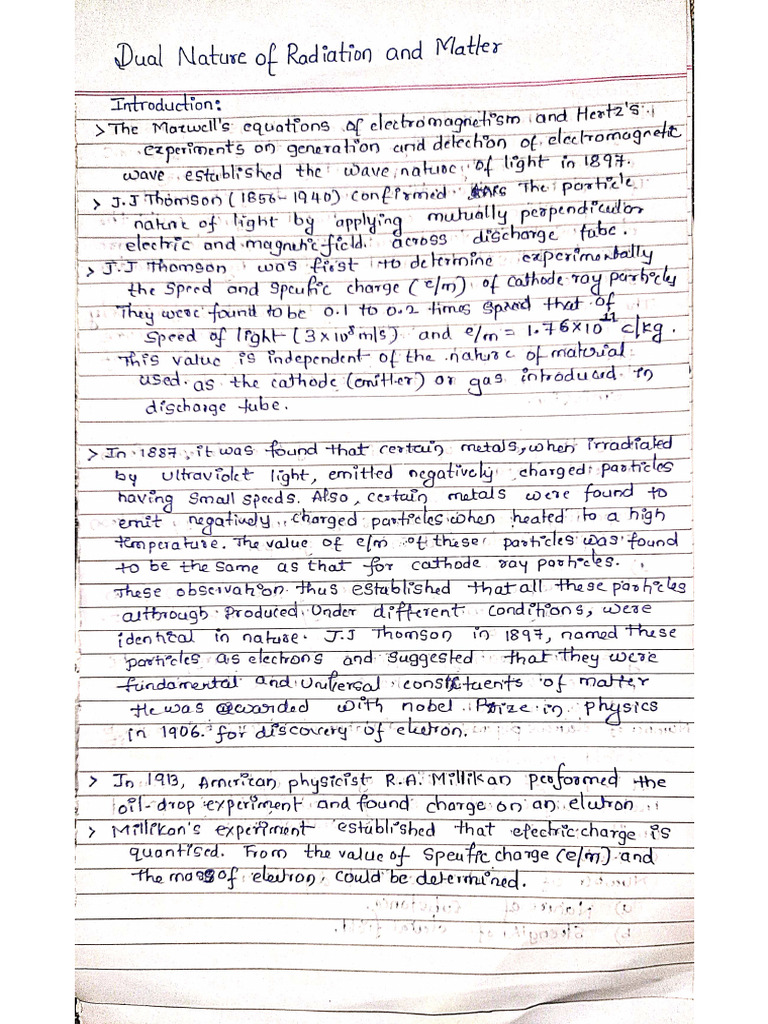 Dual Nature of Radiation and Matter
Introduction:
> The Maxwell's equations of electromagnetism and Hertz's
experiments on generation and detection of electromagnetic
wave established the wave nature of light in 1897.
> J.J Thomson (1856-1940) confirmed The particle
nature of light by applying mutually perpendicular
electric and magnetic field across discharge tube.
> J.J Thomson was first to determine experimentally
the speed and specific charge (e/m) of cathode ray particles
They were found to be 0.1 to 0.2 times speed that of
speed of light (3×10⁸m/s) and e/m = 1.76×10¹¹ c/kg.
This value is independent of the nature of material
used as the cathode (emitter) or gas introduced in
discharge tube.
> In 1887 it was found that certain metals, when irradiated
by ultraviolet light, emitted negatively charged particles
having small speeds. Also, certain metals were found to
emit negatively charged particles when heated to a high
temperature. The value of e/m of these particles was found
to be the same as that for cathode ray particles.
These observation thus established that all these particles
althrough produced under different conditions, were
identical in nature. J.J Thomson in 1897, named these
particles as electrons and suggested that they were
fundamental and universal constituents of matter
He was awarded with nobel Prize in physics
in 1906 for discovery of eletron.
> In 1913, American physicist R.A. Millikan performed the
oil-drop experiment and found charge on an elutron
> Millikan's experiment established that electric charge is
quantised. From the value of specific charge (e/m) and
the mass of electron could be determined.